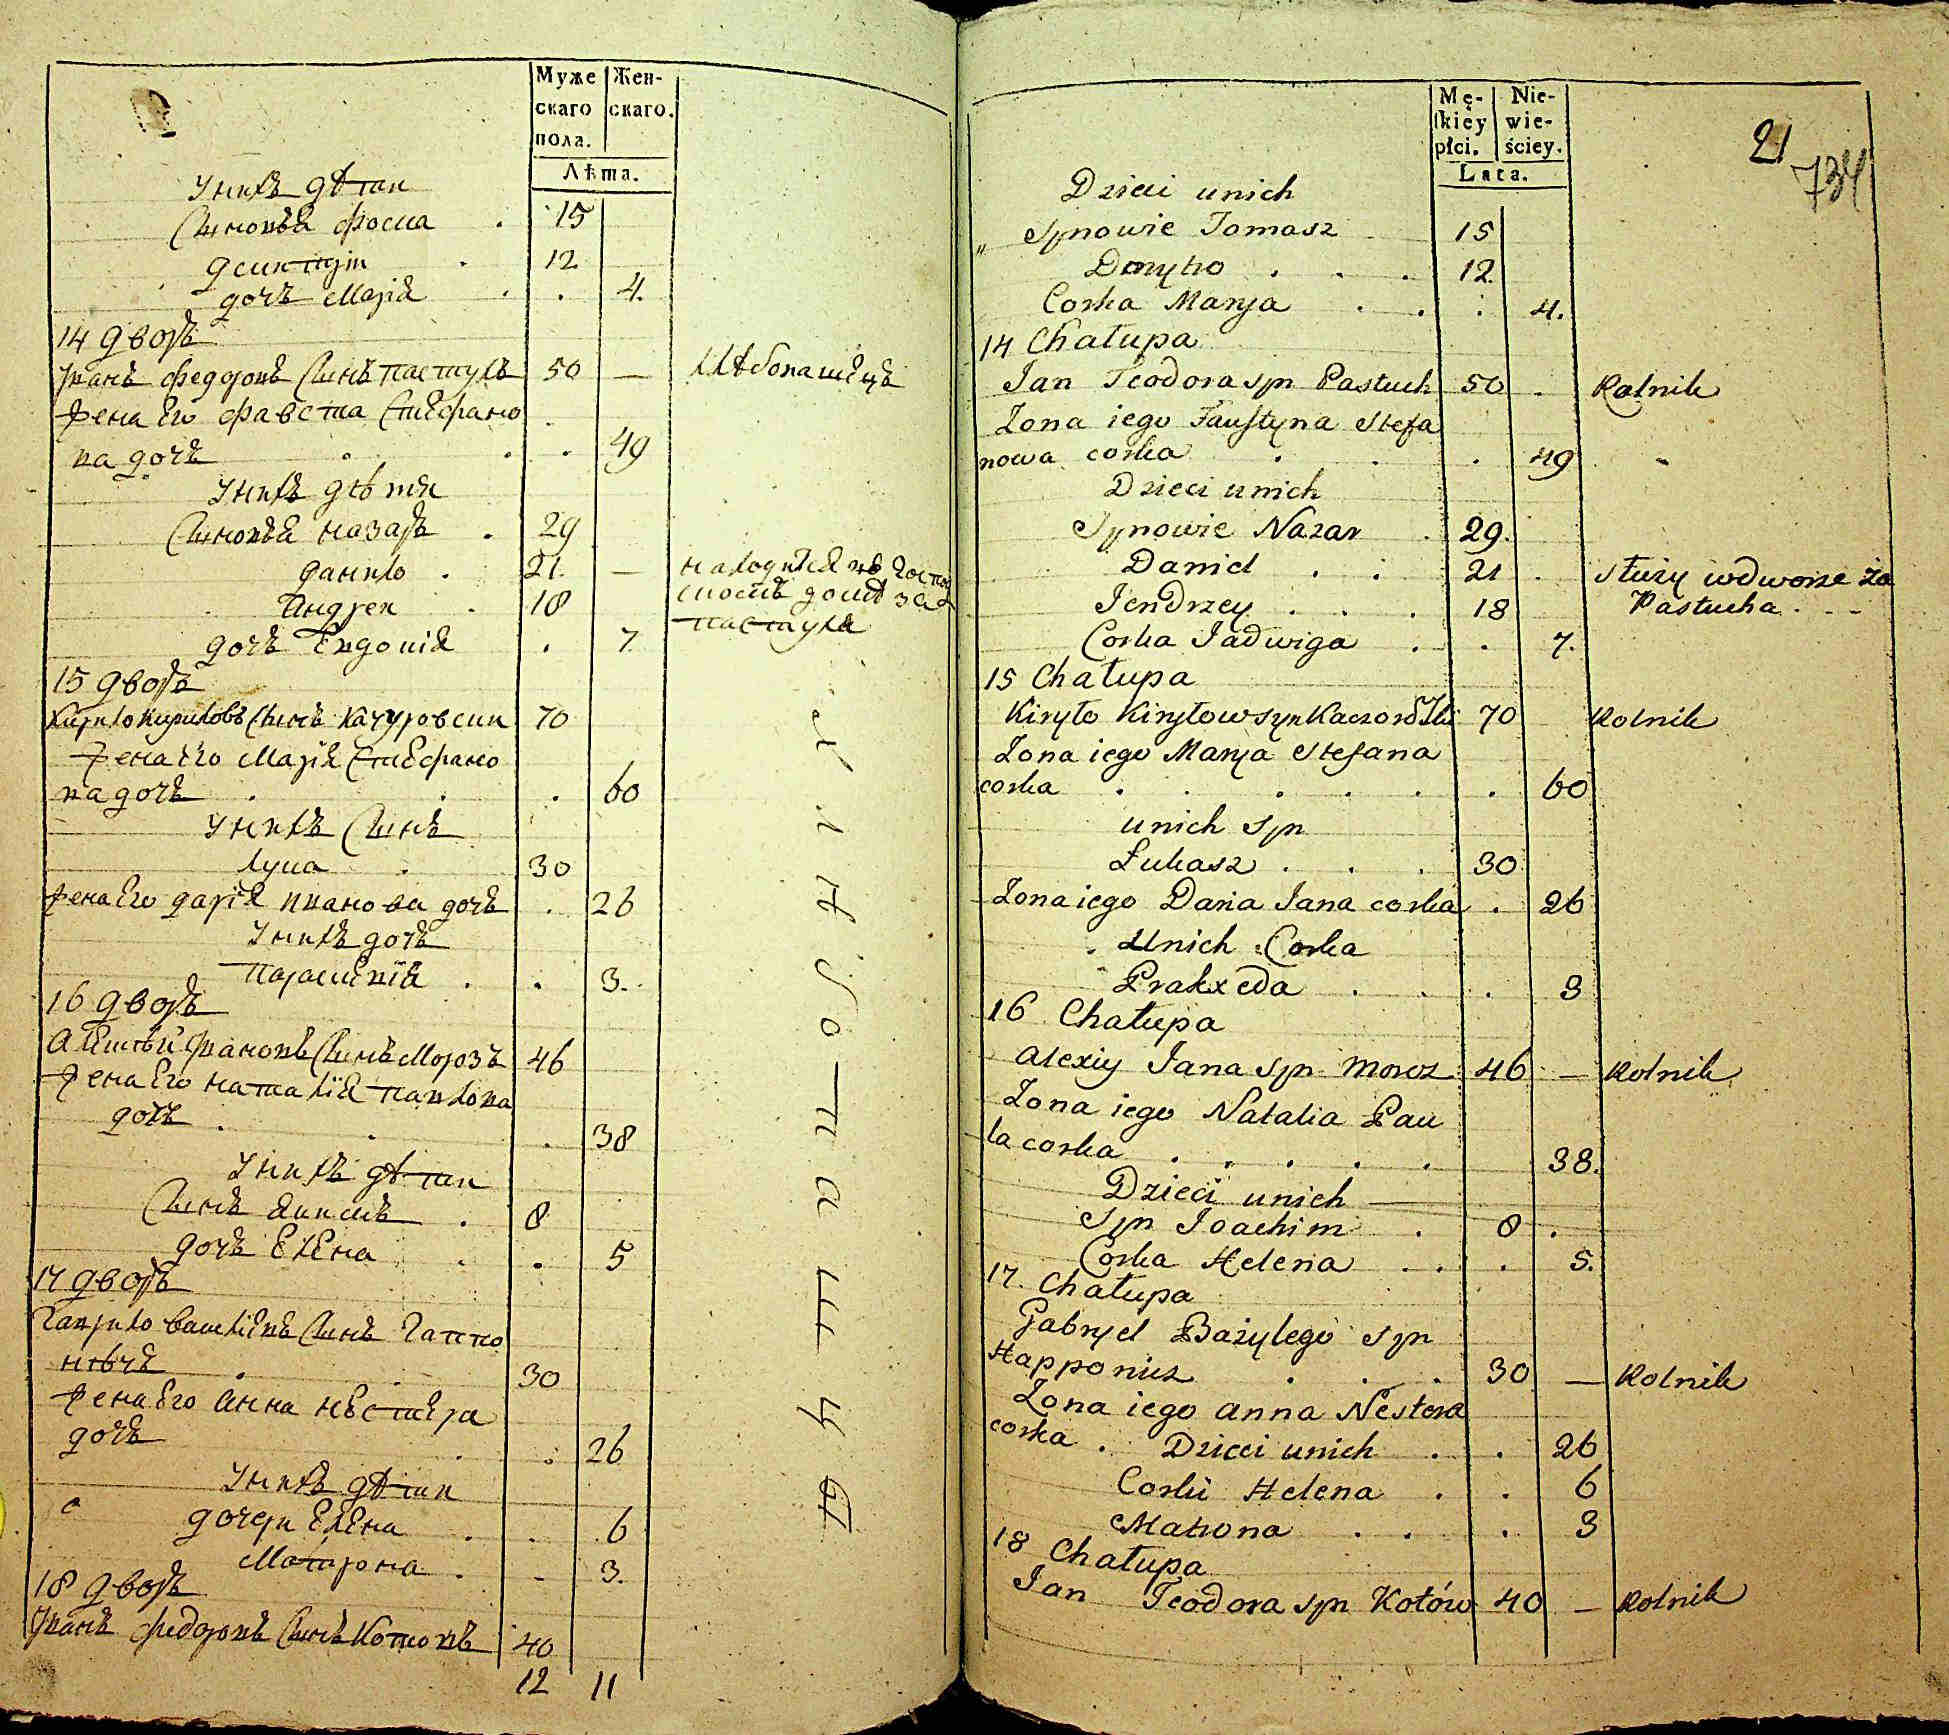 Муже Жен-
скаго скаго.
пола.
Лѣта.
У нихъ дѣти
Синовья Фома . 15
Дмитри . 12
дочь Марія . . 4.
14 дворъ
Иванъ Федоровъ Синъ Пастухъ 50 — хлѣбопашецъ
жена Его Фавста Стефано
ва дочь . . . 49
У нихъ дѣти
Синовья Назаръ . 29
Данило . 21. — находится въ госпо
Андреи . 18
пастуха
дочь Евдокия . 7
15 дворъ
Кирило Кириловъ Синъ Качуровски 70
жена Его Марія Стефано
ва дочь . . . 60
У нихъ Синъ
Лука . 30
жена Его Дарія Иванова дочь . 26
У нихъ дочь
Параскевія . . 3.
16 дворъ
Алексѣй Ивановъ Синъ Морозъ 46
жена Его Наталія Павлова
дочь . . . 38
У нихъ дѣти
Синъ Якимъ . 8
дочь Елена . . 5
17 дворъ
Гаврило Василіевъ Синъ Гаппо
. . 30
жена Его Анна Нестера
дочь . . 26
У нихъ дѣти
дочери Елена . . 6
Матрона . - 3.
18 дворъ
Иванъ Федоровъ Синъ Котовъ 40
12 11
Mę- Nie-
skiey wie-
płci. ściey.
Lata.
21
734
Dzieci unich
„ Synowie Tomasz 15
Dmytro . . . 12
Corka Marya . . . 4.
14 Chałupa
Jan Teodora syn Pastuch 50 . Rolnik
Zona iego Faustyna Stefa
nowa corka . . . 49
Dzieci unich
Synowie Nazar . 29.
Daniel . . 21 . służy wdworze za
Jendrzey . . . 18 Pastucha . - -
Corka Jadwiga . . 7.
15 Chałupa
Kiryło Kiryłow syn Kaczorowski 70 Rolnik
Zona iego Marya Stefana
corka . . . . . . 60
unich syn
Łukasz . . . 30
Zona iego Daria Jana corka . 26
Unich Corka
Prakxeda . . . 3
16 Chałupa
Alexiy Jana syn Moroz 46 — Rolnik
Zona iego Natalia Paw
ła corka . . . . . 38.
Dzieci unich
Syn Joachim . 8 .
Corka Helena . . . 5.
17. Chałupa
Gabryel Bazylego syn
Happonicz . . . 30 — Rolnik
Zona iego Anna Nestora
corka . . . 26
Dzieci unich
Corki Helena . . 6
Matrona . . . 3
18 Chałupa
Jan Teodora syn Kotów 40 — Rolnik